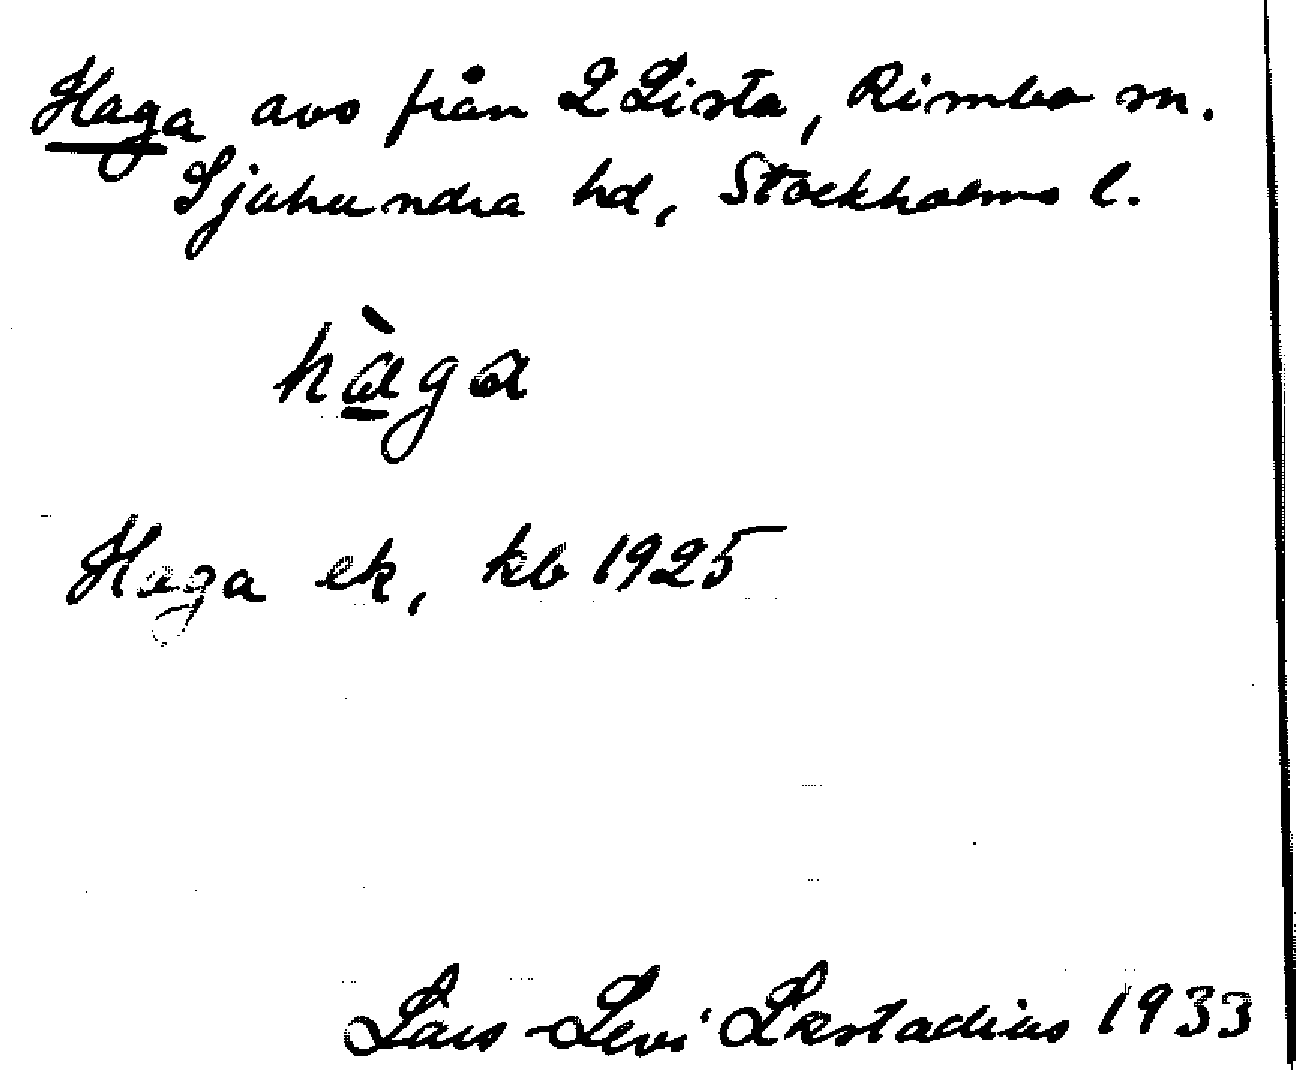 Haga avs från 2 Lista, Rimbo sn.
Sjuhundra hd, Stockholms l.
hàga
Haga ek, kb 1925
Lars-Levi Læstadius 1933